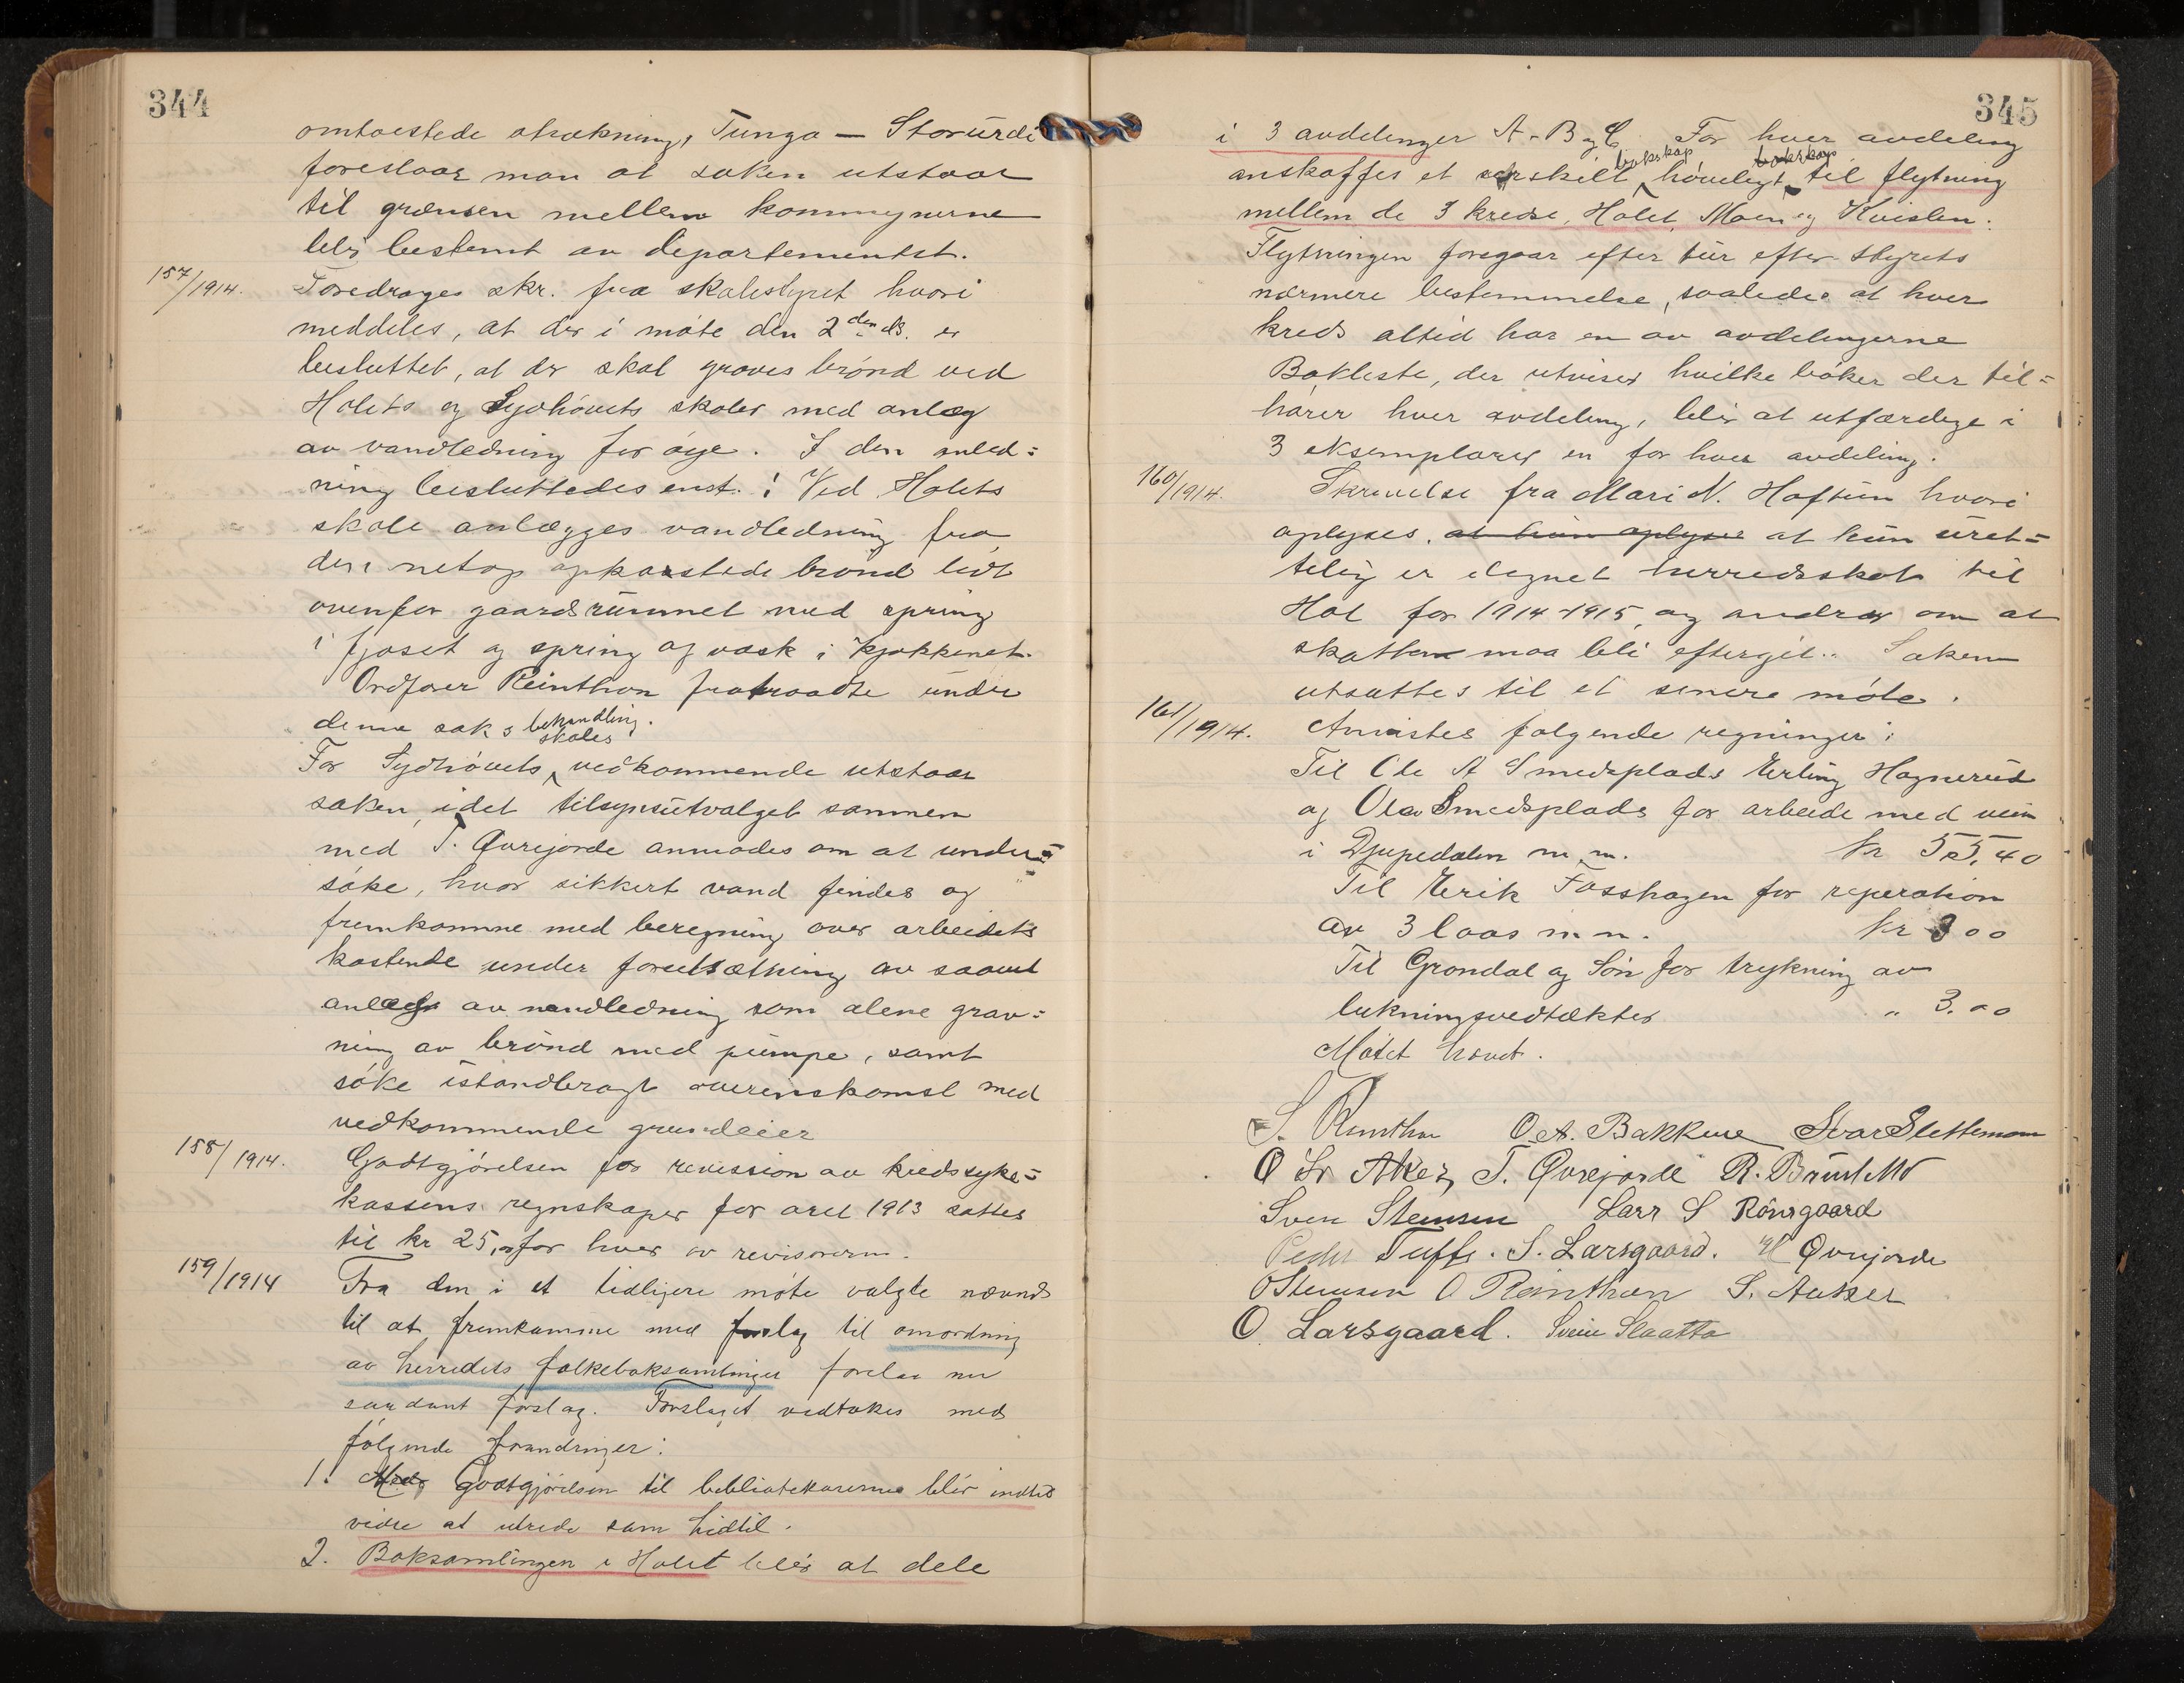 344
omtvistede strækning, Tunga — Storurdi
foreslaar man at saken utstaar
til grænsen mellem kommunerne
blir bestemt av departementet.
157/1914. Foredrages skr. fra skolestyret hvori
meddeles, at der i møte den 2den ds. er
besluttet, at der skal graves brønd ved
Holets og Sydhovets skoler med anlæg
av vandledning for øie. I den anled=
ning besluttedes enst.: Ved Holets
skole anlægges vandledning fra
den netop opkastede brønd lidt
ovenfor gaardsrummet med spring
i fjøset og spring og vask i kjøkkenet.
Ordfører Reinthon fratraadte under
denne saks behandling.
For Sydhovets skoles vedkommende utstaar
saken, idet tilsynsutvalget sammen
med T. Øvrejorde anmodes om at under=
søke, hvor sikkert vand findes og
fremkomme med beregning over arbeidets
kostende under forutsætning av saavel
anlæg av vandledning som alene grav=
ning av brønd med pumpe, samt
søke istandbragt overenskomst med
vedkommende grundeier
158/1914. Godtgjørelsen for revission av kredssyke=
kassens regnskaper for aret 1913 sattes
til kr 25,00 for hver av revisorerne.
159/1914 Fra den i et tidligere møte valgte nævnd
til at fremkomme med forslag til omordning
av herredets folkeboksamlinger forelaa nu
saadant forslag. Forslaget vedtokes med
følgende forandringer:
1. Godtgjørelsen til bibliotekarerne blir indtil
videre at utrede som hidtil.
2. Boksamlingen i Holet blir at dele
345
i 3 avdelinger A-B og C. For hver avdeling
anskaffes et særskilt bokskap høveligt bokskap til flytning
mellem de 3 kredse, Holet, Moen og Kvislen.
Flytningen foregaar efter tur efter styrets
nærmere bestemmelse, saaledes at hver
kreds altid har en av avdelingerne
Bokliste, der utviser hvilke bøker der til=
hører hver avdeling, blir at utfærdige i
3 eksemplarer en for hver avdeling.
160/1914. Skrivelse fra Mari N. Haftun hvori
oplyses, at hun oplyser at hun uret=
telig er ilignet herredsskat til
Hol for 1914-1915, og andrar om at
skatten maa bli eftergit. Saken
utsattes til et senere møte.
161/1914. Anvistes følgende regninger:
Til Ole A Smedsplads Erling Hagnerud
og Ola Smedsplads for arbeide med veien
i Djupedalen m.m. kr 55,40
Til Erik Fosshagen for reperation
av 3 laas m.m. kr 3 00
Til Grøndal og Søn for trykning av
lukningsvedtækter „ 3.00
Møtet hævet.
S. Reinthon O. A. Bakkene Ivar Slettemoen
O Aker T. Øvrejorde R. Brustetto
Sven Stensen Lars S Rönsgaard
Peder Tuffte. S. Larsgaard. H Øvrejorde
O Stensen O Reinthon S. Aaker
O Larsgaard. Svein Slaatto